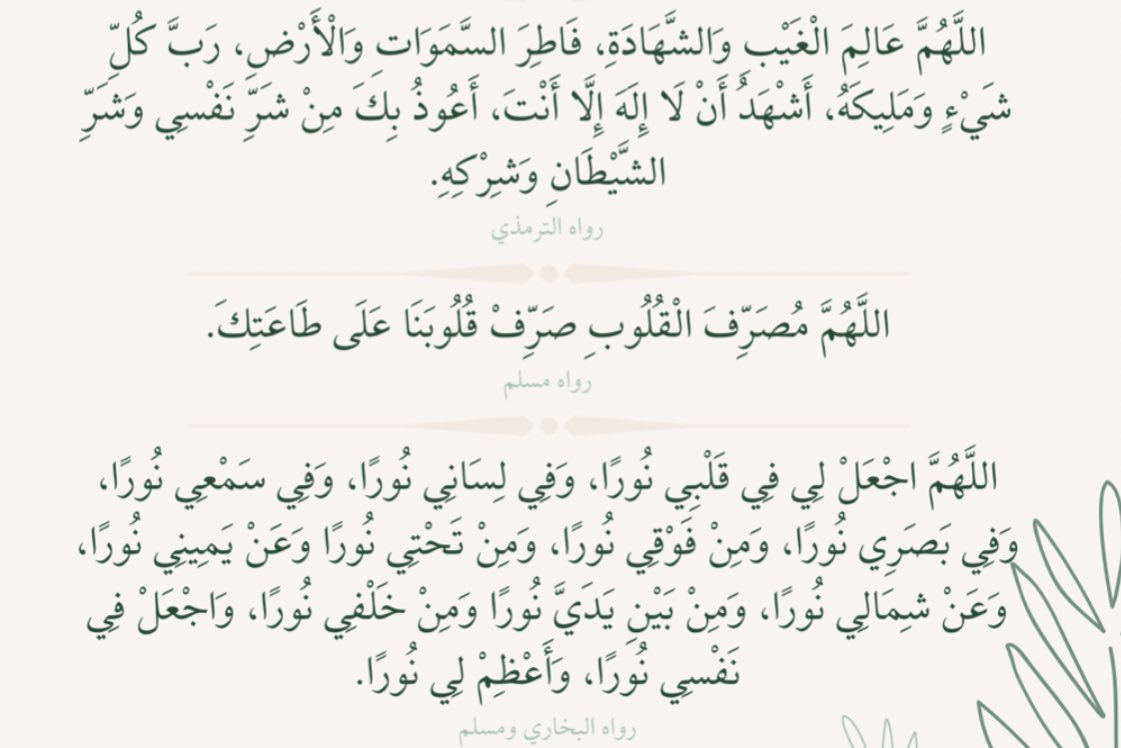 اللَّهُمَّ عَالِمَ الْغَيْبِ وَالشَّهَادَةِ، فَاطِرَ السَّمَوَاتِ وَالْأَرْضِ، رَبَّ كُلِّ
شَيْءٍ وَمَلِيكَهُ، أَشْهَدُ أَنْ لَا إِلَهَ إِلَّا أَنْتَ، أَعُوذُ بِكَ مِنْ شَرِّ نَفْسِي وَشَرِّ
الشَّيْطَانِ وَشِرْكِهِ.
رواه الترمذي
اللَّهُمَّ مُصَرِّفَ الْقُلُوبِ صَرِّفْ قُلُوبَنَا عَلَى طَاعَتِكَ.
رواه مسلم
اللَّهُمَّ اجْعَلْ لِي فِي قَلْبِي نُورًا، وَفِي لِسَانِي نُورًا، وَفِي سَمْعِي نُورًا،
وَفِي بَصَرِي نُورًا، وَمِنْ فَوْقِي نُورًا، وَمِنْ تَحْتِي نُورًا وَعَنْ يَمِينِي نُورًا،
وَعَنْ شِمَالِي نُورًا، وَمِنْ بَيْنِ يَدَيَّ نُورًا وَمِنْ خَلْفِي نُورًا، وَاجْعَلْ فِي
نَفْسِي نُورًا، وَأَعْظِمْ لِي نُورًا.
رواه البخاري ومسلم